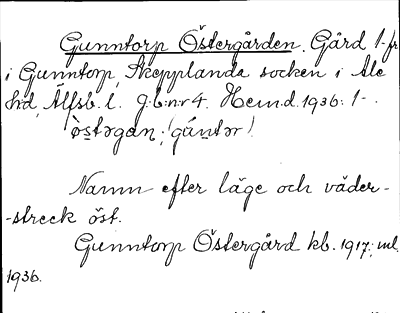 Gunntorp Östergården. Gård 1-fr
i Gunntorp, Skepplanda socken i Ale
hd, Älfsb. l. g.b:n:r 4. Hemd. 1936: 1-.
östərgan; (gúntər)
Namn efter läge och väder-
-streck öst.
Gunntorp Östergård kb. 1917; ml.
1936.